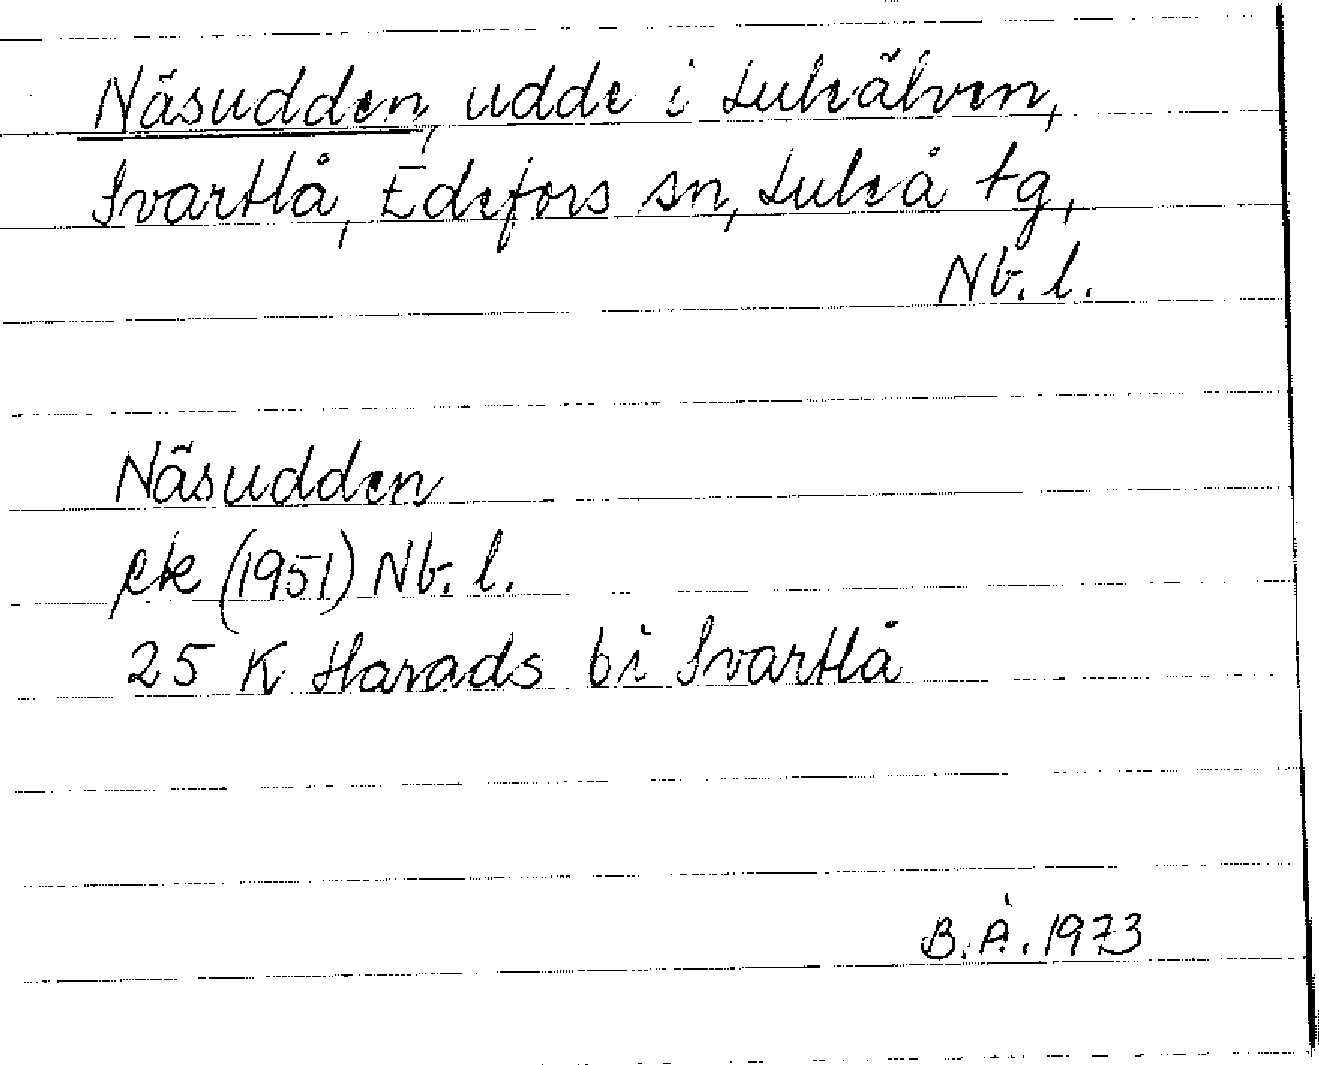 Näsudden, udde i Luleälven,
Svartlå, Edefors sn, Luleå tg,
Nb. l.
Näsudden
ek (1951) Nb. l.
25 K Harads bi Svartlå
B. Å. 1973